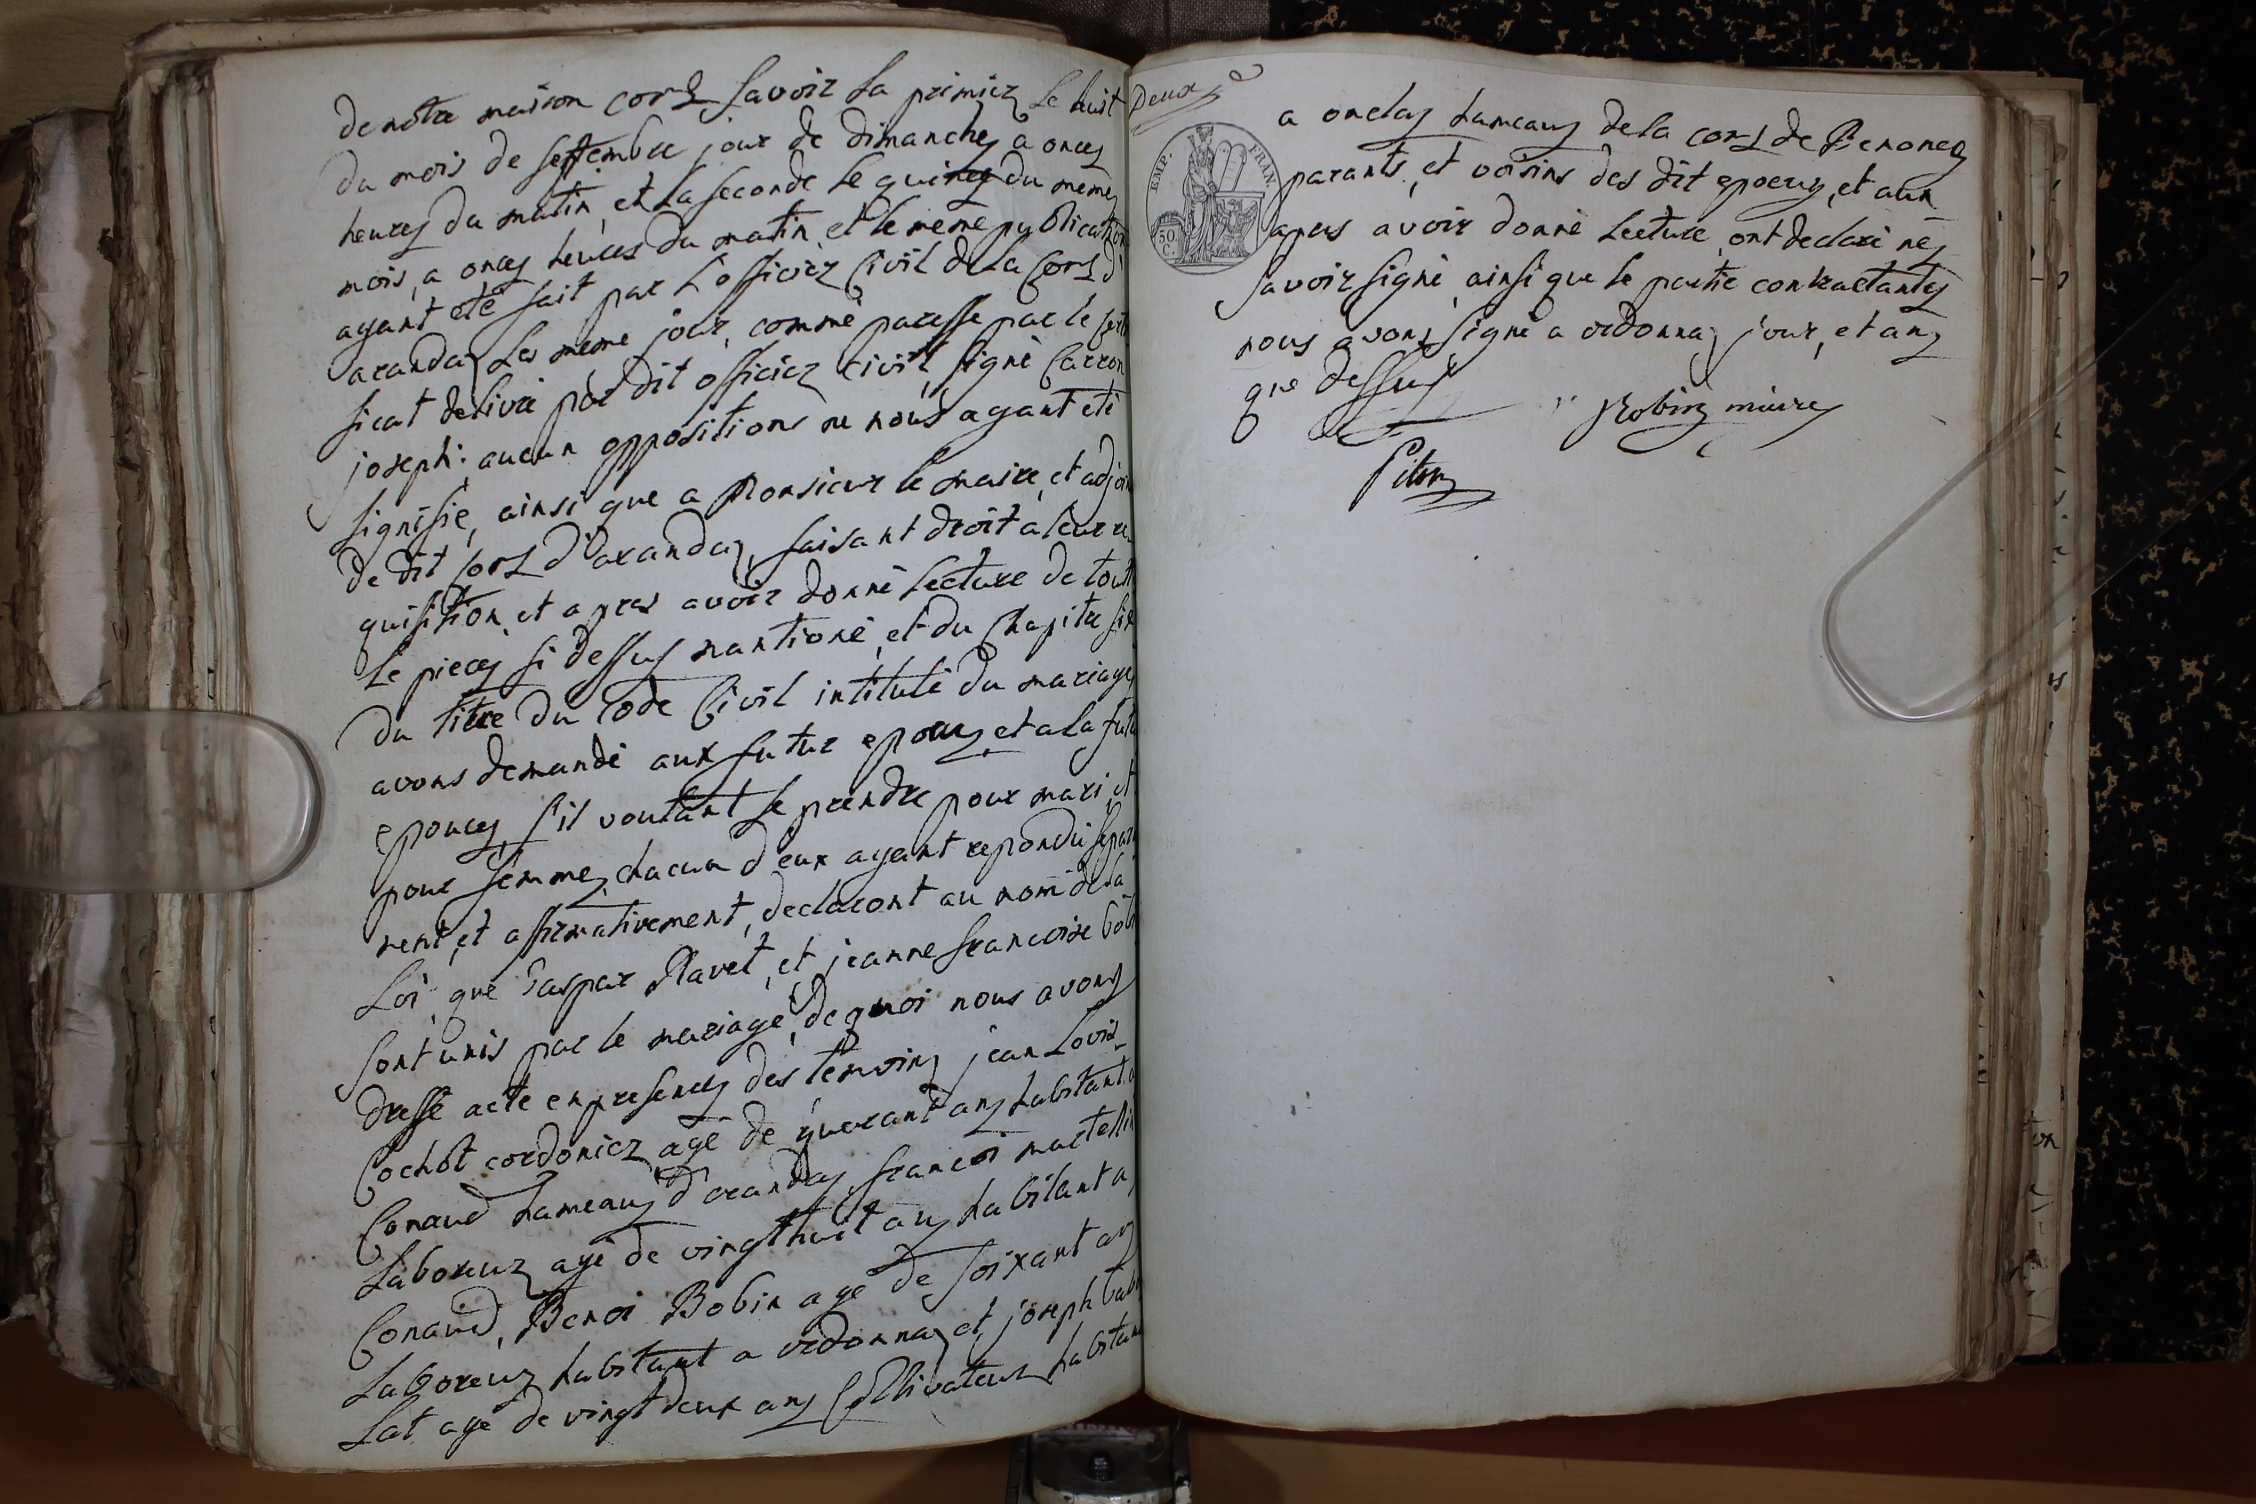 de notre maison cor[l] savoir la premier le huit
du mois de septembre jour de dimanche, a onces
heures du matin, et la seconde le quince du meme
mois, a onces heures du matin, et le meme publication
ayant eté fait par l'officier civil de la cor[l] d'
aranda les meme jour, comme paresse par le certi
ficat delivré par dit officier civil signé Carron
joseph: aucun oppositions ne nous ayant eté
signifié, ainsi que a Monsieur le maire, et adjoin
de dit cor[l] d'aranda, faisant droit a leur re
quisition, et apres avoir donné lecture de tout
le pieces si dessus mantioné, et du Chapitre six
du titre du code Civil intitulé du mariage
avons demandé aux futur epoux et a la futu
epouces, s'il voulant se prendre pour mari et
pour femme, chacun d'eux ayant repondu separe
ment, et affirmativement, declaront au nom de la
Loi, que Gaspar Ravet, et jeanne francoise
sont unis par le mariage, de quoi nous avons
dressé acte en presences des temoins jean Lovis
Cochot cordonier agé de querant ans habitant a
Conand hameaux d'aranda, francoi martellin
Laboreur agé de vingt huit ans habitant a
Conand, Benoi Bobin agé de soixant ans
Laboreur habitant a ordonna, et joseph
Lat agé de vingt deux ans Coltivateur habitant
Deux
a onclas hameaux de la cor[l] de Benonce
EMP. FRAN.
50 C.
parants, et voisins des dit epoeux, et aux
apres avoir donné lecture, ont declaré ne
savoir signé, ainsi que le partie contractantes
nous avons signé a ordonna, jour, et an
que dessus
Robin maire
Pitre